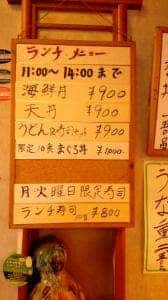 ランチ・メニュー
11:00～14:00まで
海鮮丼 ¥900
天丼 ¥900
うどん寿司セット ¥900
限定10食まぐろ丼 ¥1,000
月・火曜日限定寿司
ランチ寿司 ¥800
うな重